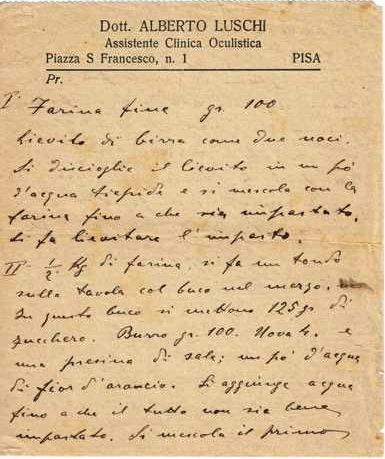 Dott. ALBERTO LUSCHI
Assistente Clinica Oculistica
Piazza S Francesco, n. 1 PISA
Pr.
I° Farina fine gr. 100
Lievito di birra come due noci.
Si discioglie il lievito in un pó
d'acqua tiepida e si mescola con la
farina fino a che sia impastato.
Si fa lievitare l'impasto.
II° 1/2 Kg di farina, si fa un tondo
sulla tavola col buco nel mezzo.
In questo buco si mettono 125 gr di
zucchero. Burro gr. 100. Uova 4. e
una presina di sale; un pó d'acqua
di fior d'arancio. Si aggiunge acqua
fino a che il tutto non sia bene
impastato. Si mescola il primo